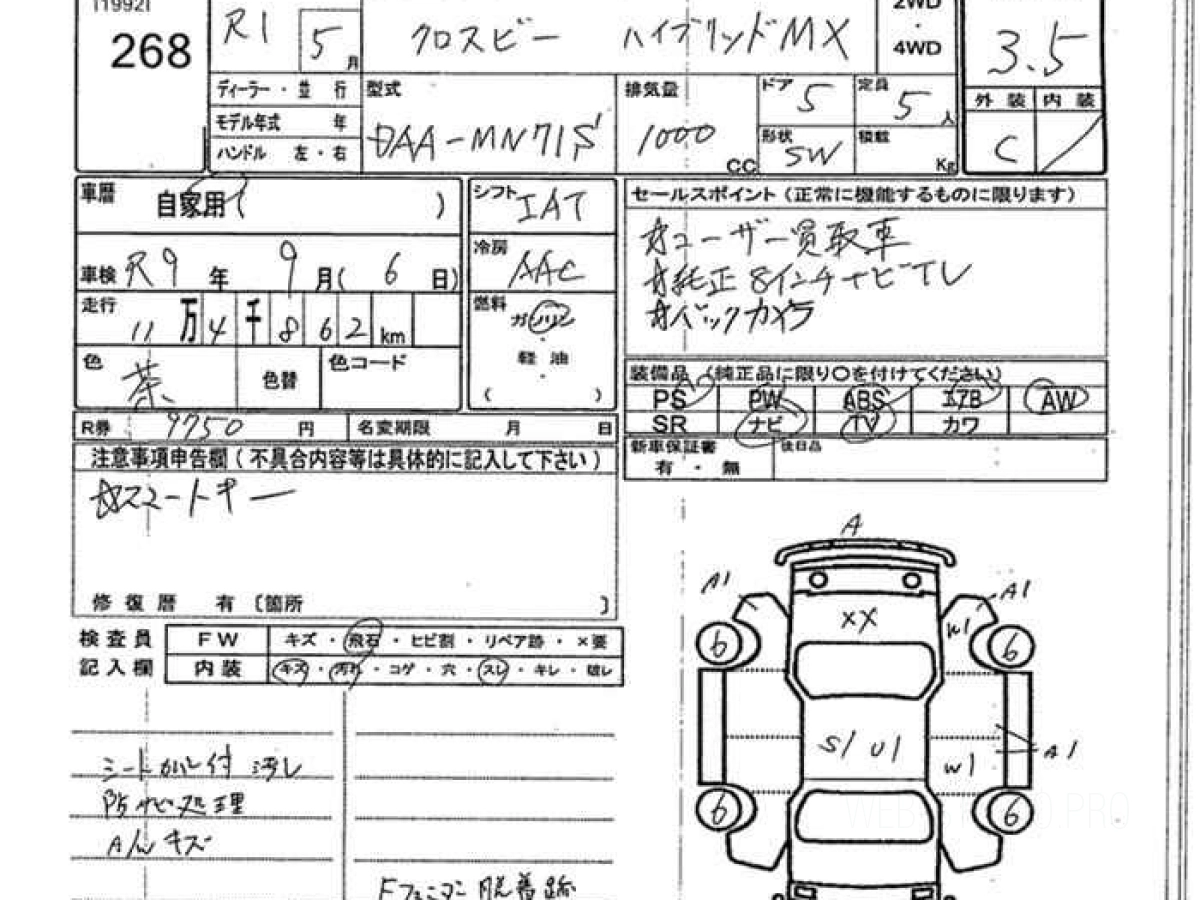 268
R1 5月
クロスビー ハイブリッドMX
2WD
・
4WD
3.5
ディーラー・並 行
型式
排気量
ドア 5
定員 5人
外 装 内 装
モデル年式 年
ハンドル 左・右
DAA-MN71S
1000 CC
形状 SW
積載 Kg
C
車歴 自家用( )
シフト IAT
セールスポイント(正常に機能するものに限ります)
車検 R9年 9月( 6日)
冷房 AAC
☆ユーザー買取車
☆純正8インチナビTV
☆バックカメラ
走行 11万4千862km
燃料 ガソリン
・
軽 油
・
( )
色 茶
色替
色コード
装備品 (純正品に限り〇を付けてください)
PS PW ABS エアB AW
SR ナビ TV カワ
R券 9750 円 名変期限 月 日
新車保証書
有・無
後日品
注意事項申告欄(不具合内容等は具体的に記入して下さい)
☆スマートキー
修 復 歴 有〔箇所 〕
検 査 員 FW キズ・飛石・ヒビ割・リペア跡・×要
記 入 欄 内 装 キズ・汚れ・コゲ・穴・スレ・キレ・破レ
シート 付 汚レ
防サビ処理
A/w キズ
Fフェンダー脱着跡
A
A1 A1
XX W1
6 6
S1 U1
W1 A1
6 6